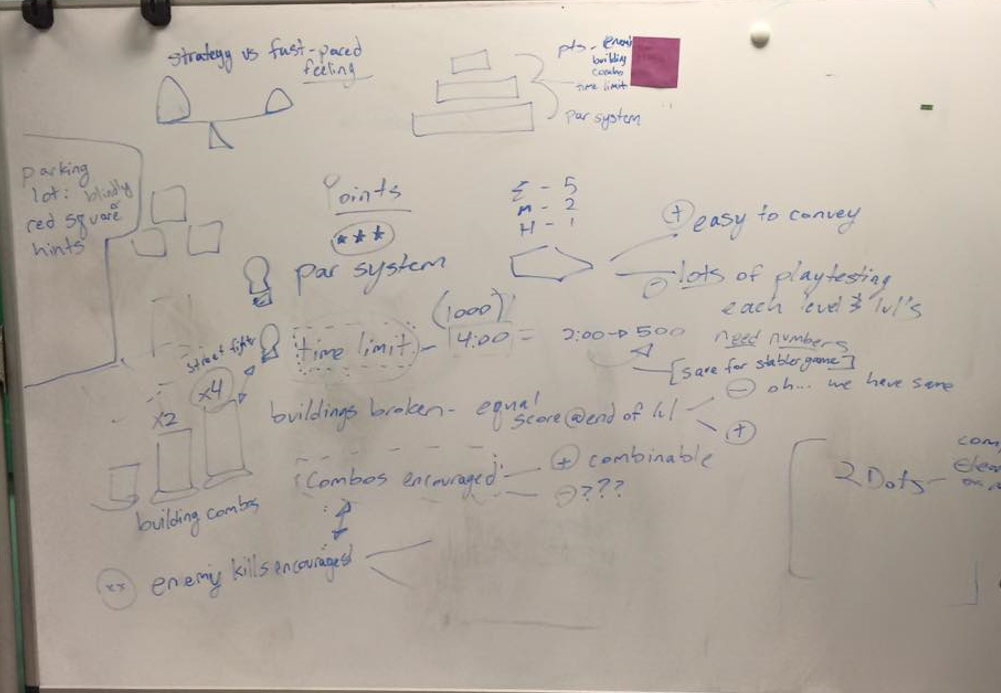 strategy vs fast-paced
feeling
pts - enemi
building
combos
time limit
par system
parking
lot: blindly
red square
hints
Points
***
E - 5
M - 2
H - 1
+ easy to convey
- lots of playtesting
each level & lvl's
par system
(1000)
street fighter
time limit - 4:00 = 2:00 → 500
need numbers
[save for stabler game]
x4
x2
buildings broken - equal
score @ end of lvl
- oh... we have same
+
combos encouraged
+ combinable
- ???
building combos
2 Dots -
com
xx enemy kills encouraged